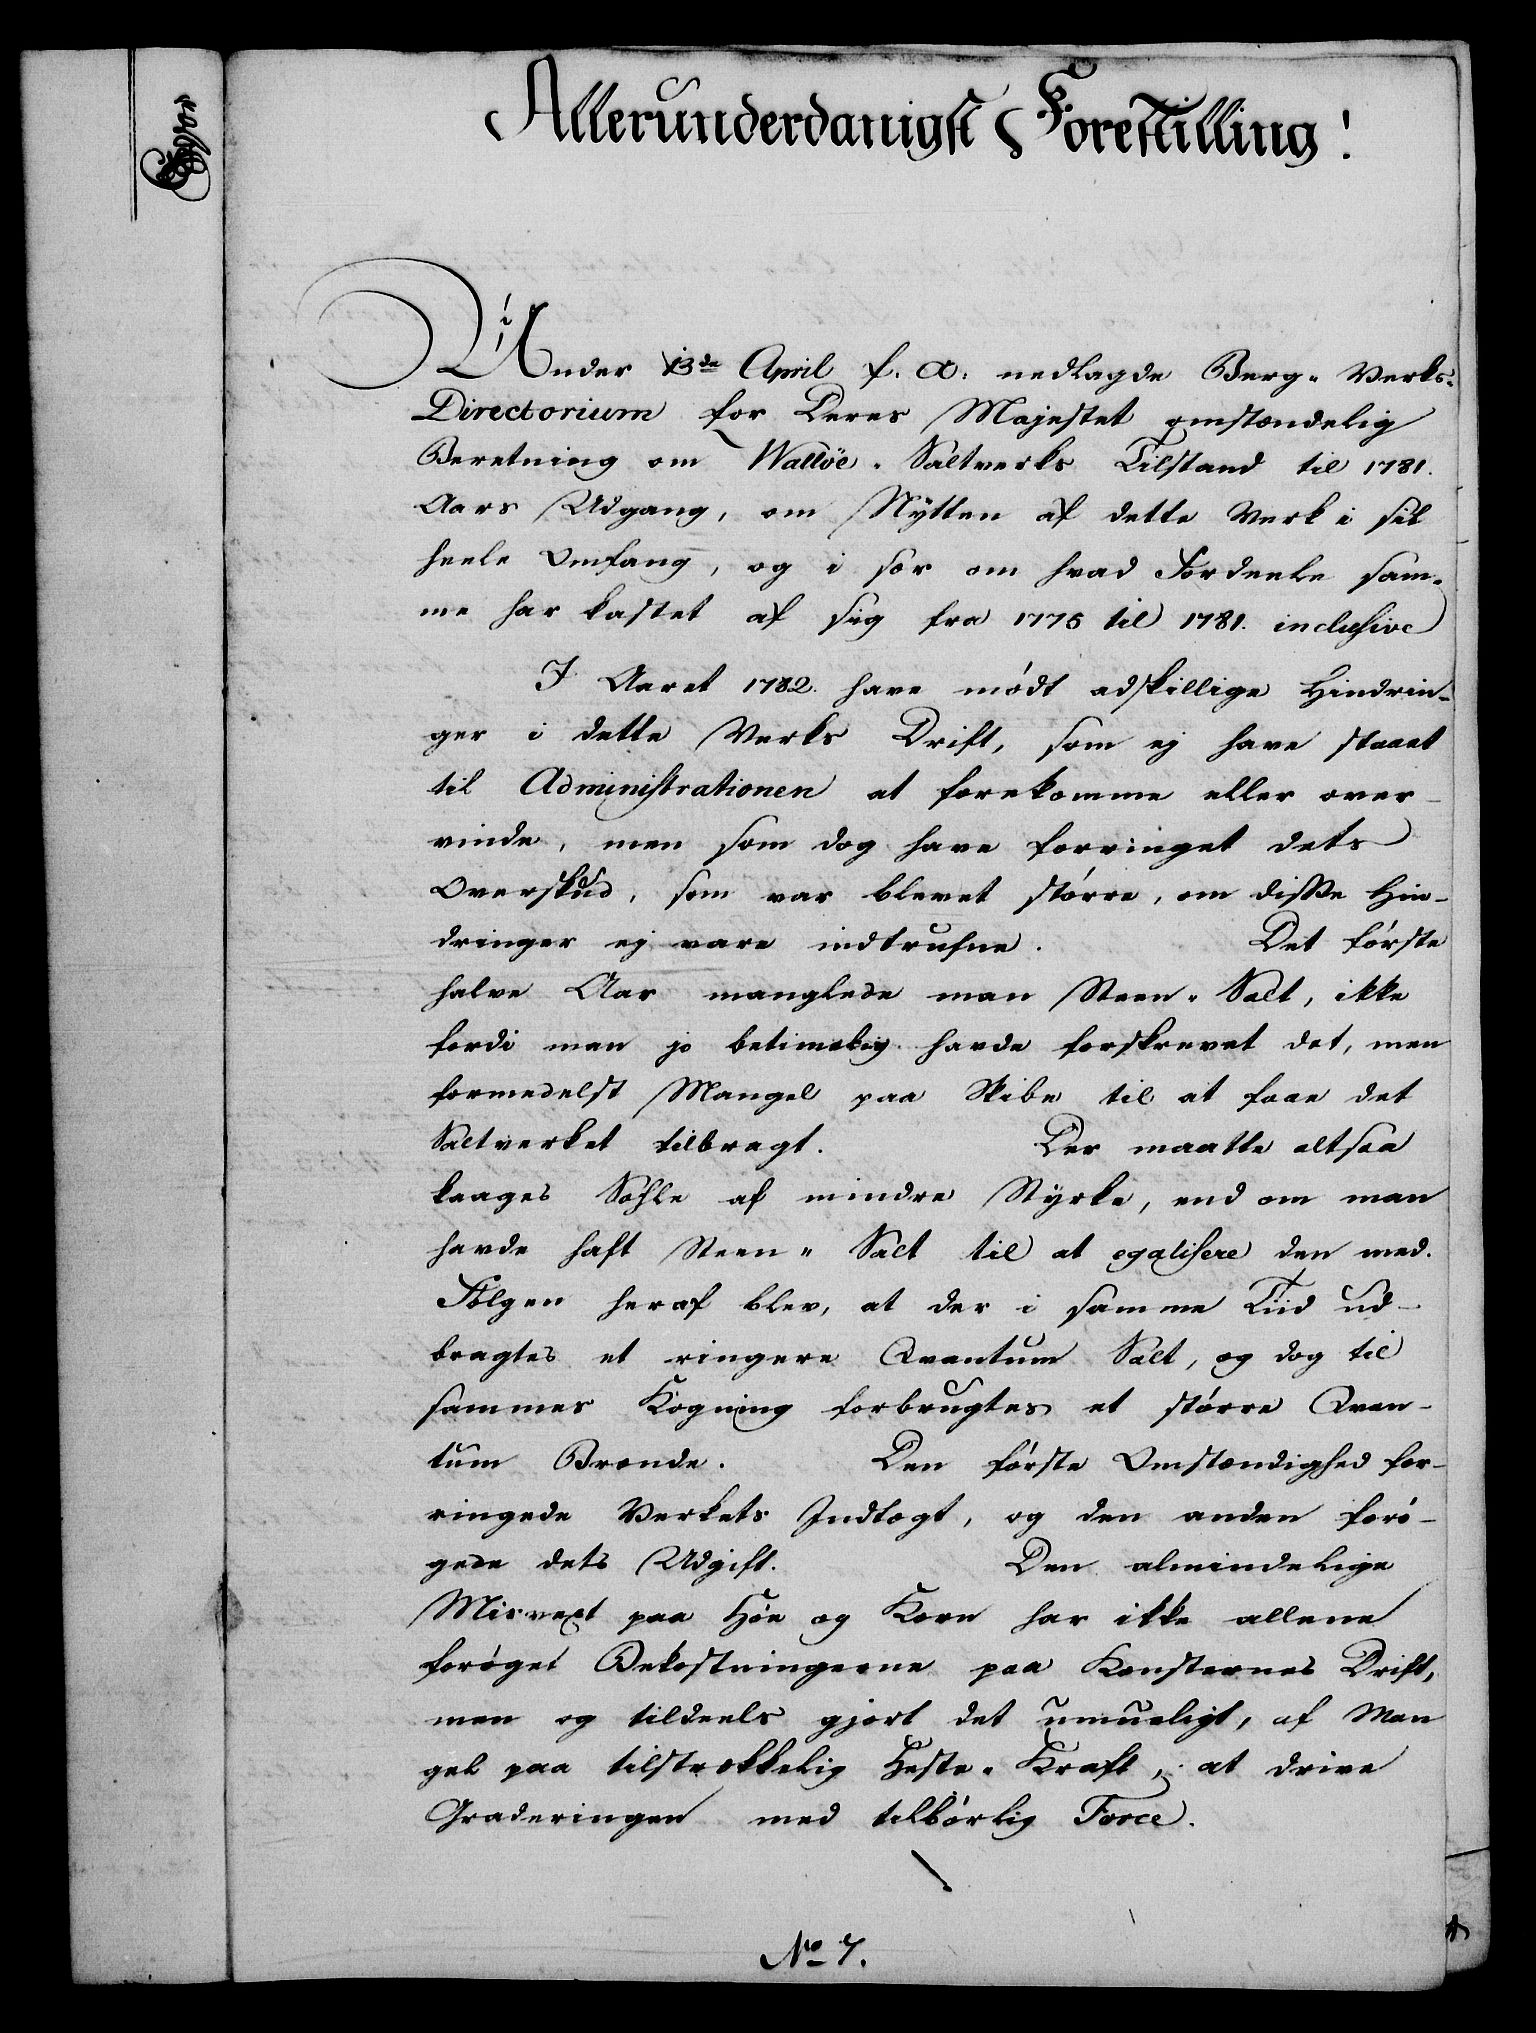 Allerunderdanigst Forestilling!
Under 13de April f. A. nedlagde Berg-Verks-
Directorium for Deres Majestet omstændelig
Beretning om Wallöe-Saltverks Tilstand til 1781.
Aars Udgang, om Nÿtten af dette Verk i sit
heele Omfang, og i sær om hvad Fordeele sam-
me har kastet af sig fra 1775 til 1781. inclusive
I Aaret 1782. have mödt adskillige Hindrin-
ger i dette Verks Drift, som ej have staaet
til Administrationen at forekomme eller over-
vinde, men som dog have forringet dets
Overskud, som var blevet större, om disse Hin-
dringer ej vare indtrufne. Det förste
halve Aar manglede man Steen-Salt, ikke
fordi man jo betimelig havde forskrevet det, men
formedelst Mangel paa Skibe til at faae det
Saltverket tilbragt. Der maatte altsaa
kaages Söhle af mindre Stÿrke, end om man
havde haft Steen-Salt til at egalisere den med.
Fölgen heraf blev, at der i samme Tiid ud-
bragtes et ringere Qvantum Salt, og dog til
sammes Kogning forbrugtes et större Qvan-
tum Brænde. Den förste Omstændighed for-
ringede Verkets Indtægt, og den anden forö-
gede dets Udgift. Den almindelige
Misvext paa Höe og Korn har ikke allene
foröget Bekostningerne paa Konsternes Drift,
men og tildeels gjort det umueligt, af Man
gel paa tilstrækkelig Heste-Kraft, at drive
Graderingen med tilbörlig Force.
No 7.